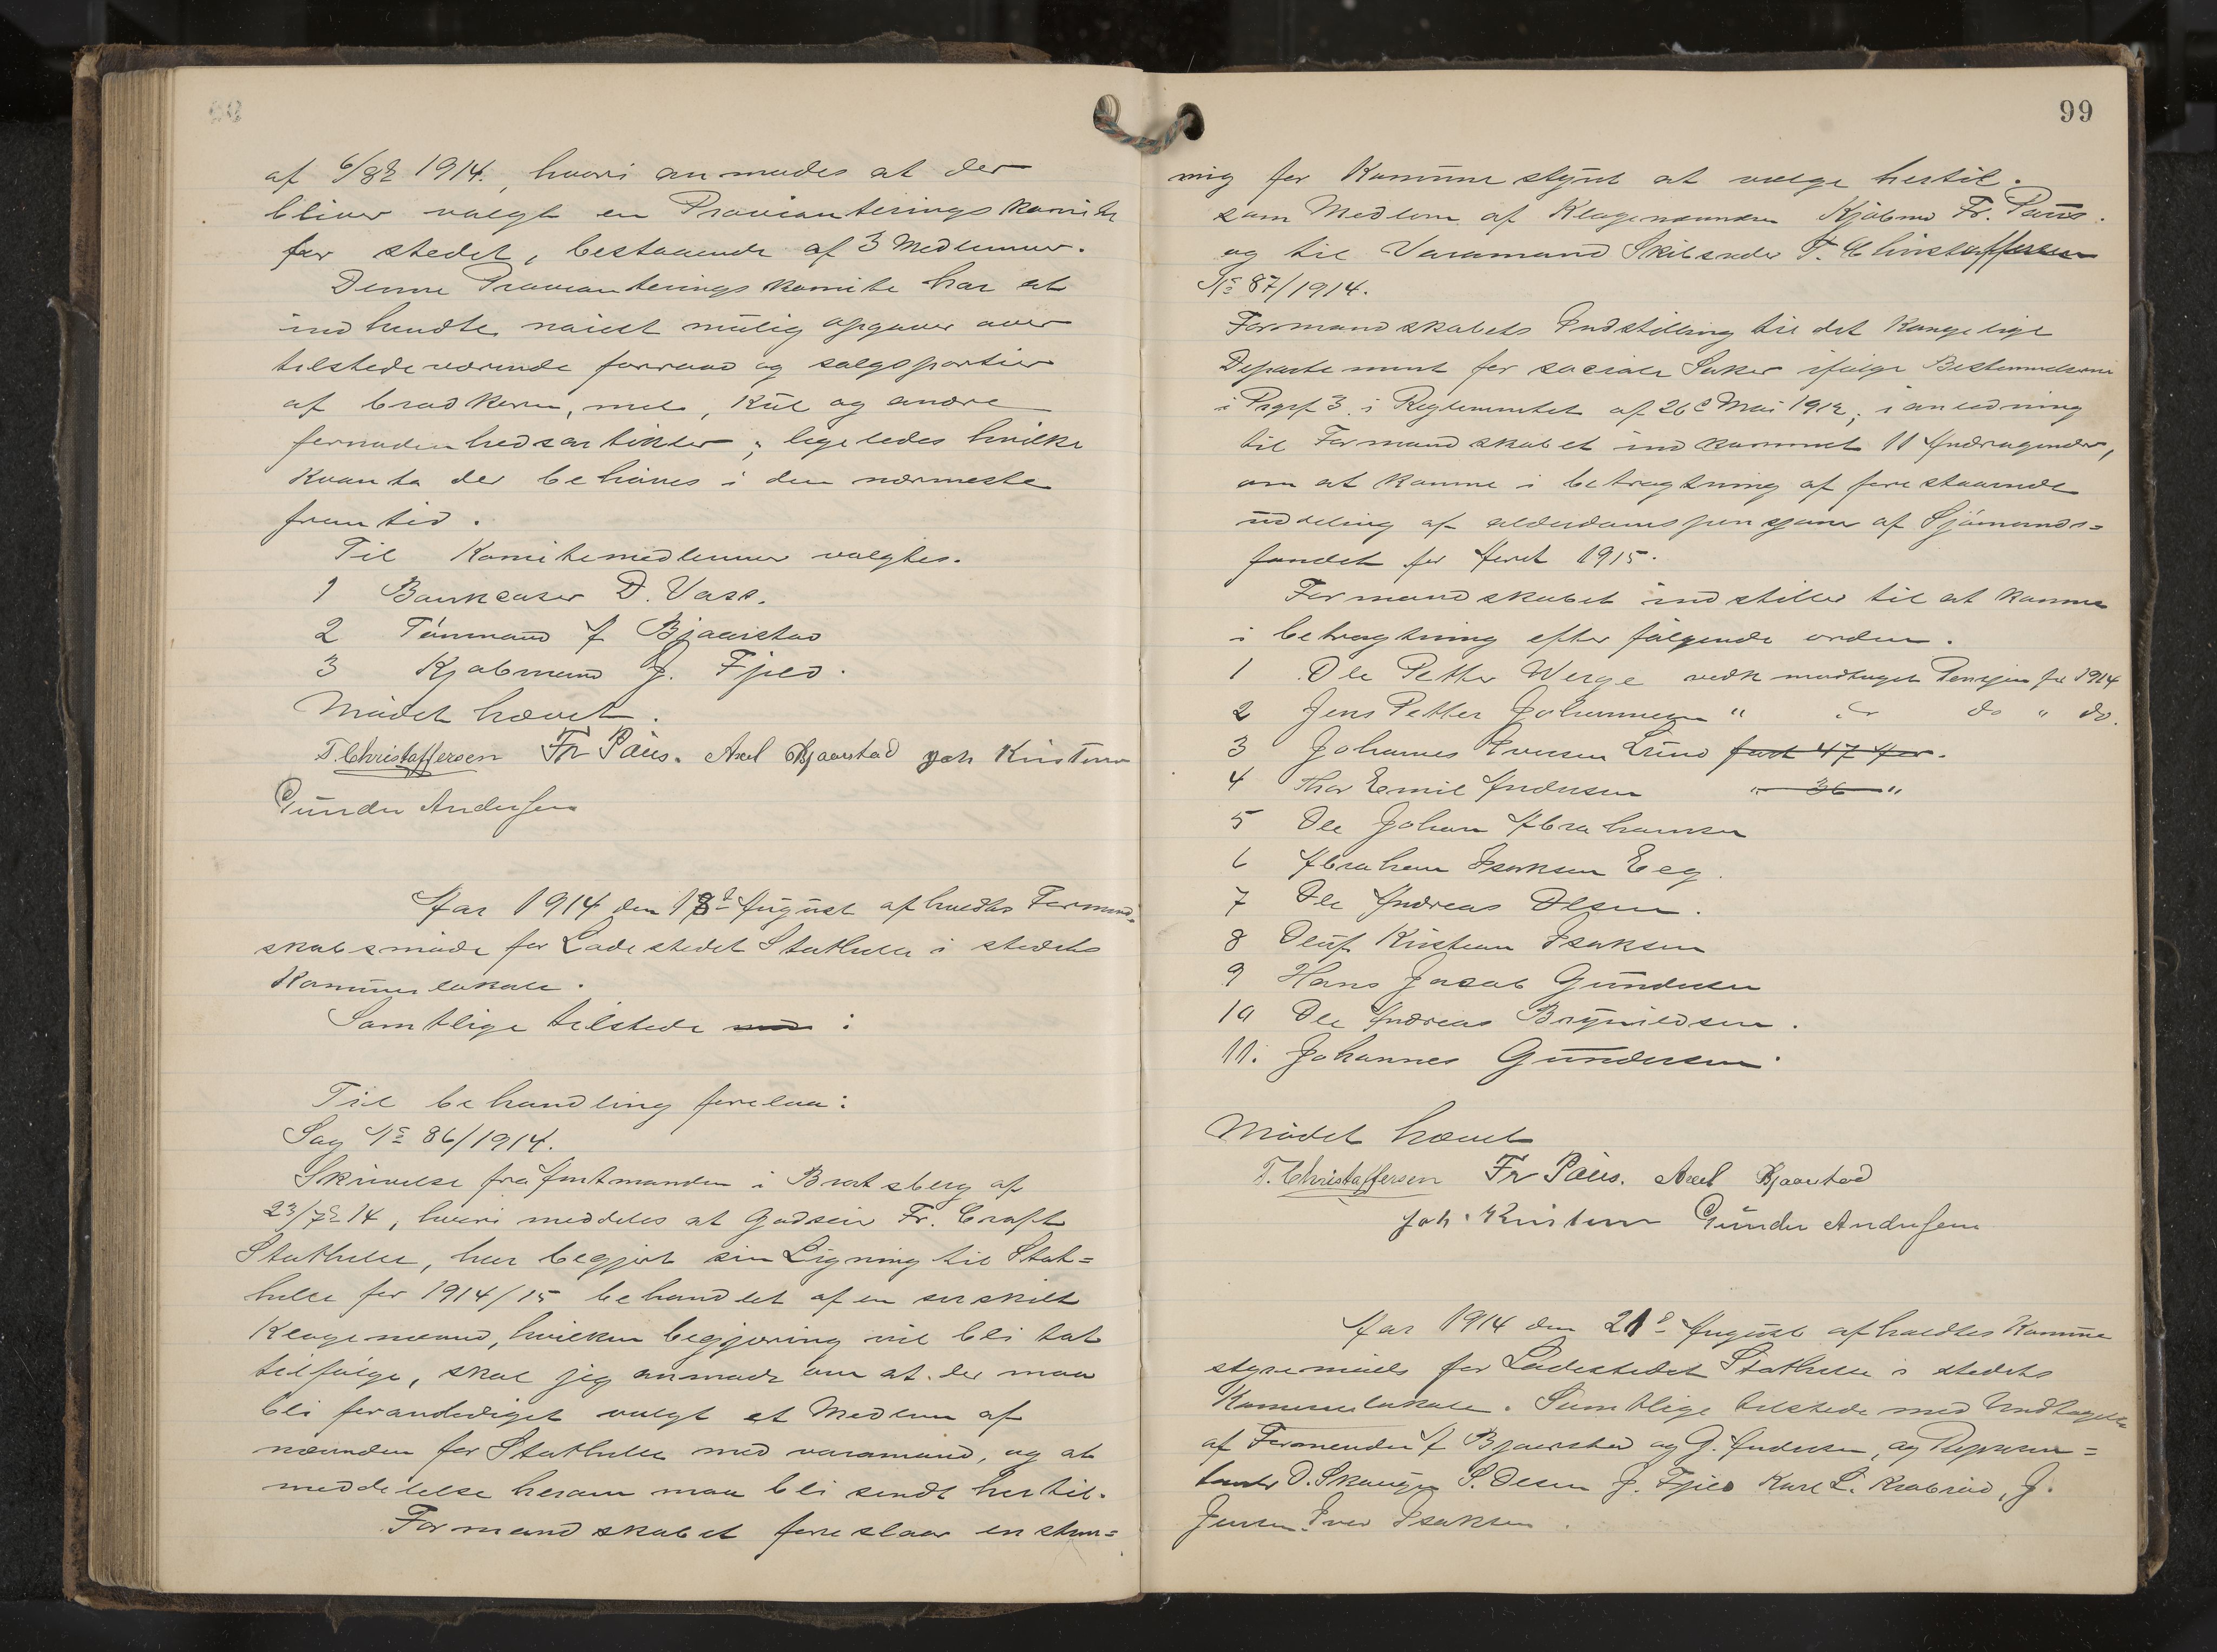 af 6/8 1914., hvori anmodes at der
bliver valgt en Provianteringskomite
for stedet, bestaaende af 3 Medlemmer.
Denne Provianteringskomite har at
indhendte nøiest mulig opgaver over
tilstedeværende forraad og salgspartier
af brødkorn, mel, kul og andre
fornødenhedsartikler; ligeledes hvilke
kvanta der behøves i den nærmeste
fremtid.
Til Komitemedlemmer valgtes.
1 Bankcaser D. Vass.
2 Tømmand A Bjaaestad
3 Kjøbmand J. Fjeld.
Mødet hævet.
T. Christoffersen Fr Paus. Axel Bjaarstad Joh Kristensen
Gunder Andersen
Aar 1914 den 18de August afholdtes Formand-
skabsmøde for Ladestedet Stathelle i stedets
Kommunelokale.
Samtlige tilstede :
Til behandling forelaa:
Sag No 86/1914.
Skrivelse fra Amtmanden i Bratsberg af
23/7 14, hvori meddeles at Godseier Fr. Croft
Stathelle, har begjært sin Ligning til Stat=
helle for 1914/15 behandlet af en særskilt
Klagenævnd, hvilken begjæring vil bli tat
tilfølge, skal jeg anmode om at der maa
bli foranlediget valgt et Medlem af
nævnden for Stathelle med varamand, og at
meddelelse herom maa bli sendt hertil.
Formandskabet foreslaar enstem=
99
mig for Kommunestyret at vælge hertil.
som Medlem af Klagenævnden Kjøbmd Fr. Paus.
og til Varamand Skibsreder T. Christoffersen
No 87/1914.
Formandskabets Indstilling til det Kongelige
Departement for sociale Saker ifølge Bestemmelserne
i Prgrf 3. i Reglementet af 26de Mai 1912, i anledning
til Formandskabet indkommet 11 Andragender,
om at komme i betragtning af forestaaende
uddeling af alderdomspensjoner af Sjømands=
fondet for Aaret 1915.
Formandskabet indstiller til at komme
i betragtning efter følgende orden.
1 Ole Petter Werge vedk modtaget Pensjon for 1914
2 Jens Petter Johannesen " do do " do.
3 Johannes Iversen Lund fart 47 Aar.
4 Thor Emil Andersen " 36 "
5 Ole Johan Abrahamsen
6 Abraham Isaksen Eeg.
7 Ole Andreas Olsen.
8 Oluf Kristian Isaksen
9 Hans Jacob Gundersen
10 Ole Andreas Brynildsen.
11. Johannes Gundersen.
Mødet hævet
T. Christoffersen Fr Paus. Axel Bjaarstad
Joh. Kristensen Gunder Andersen
Aar 1914 den 21de August afholdtes Kommune
styremøde for Ladestedet Stathelle i stedets
Kommunelokale. Samtlige tilstede med Undtagelse
af Formænder A Bjaarstad og G. Andersen, og Repræsen=
tanter O. Skaugen S. Olsen J. Fjeld Karl L. Krabrød, J.
Jensen. Iver Isaksen.